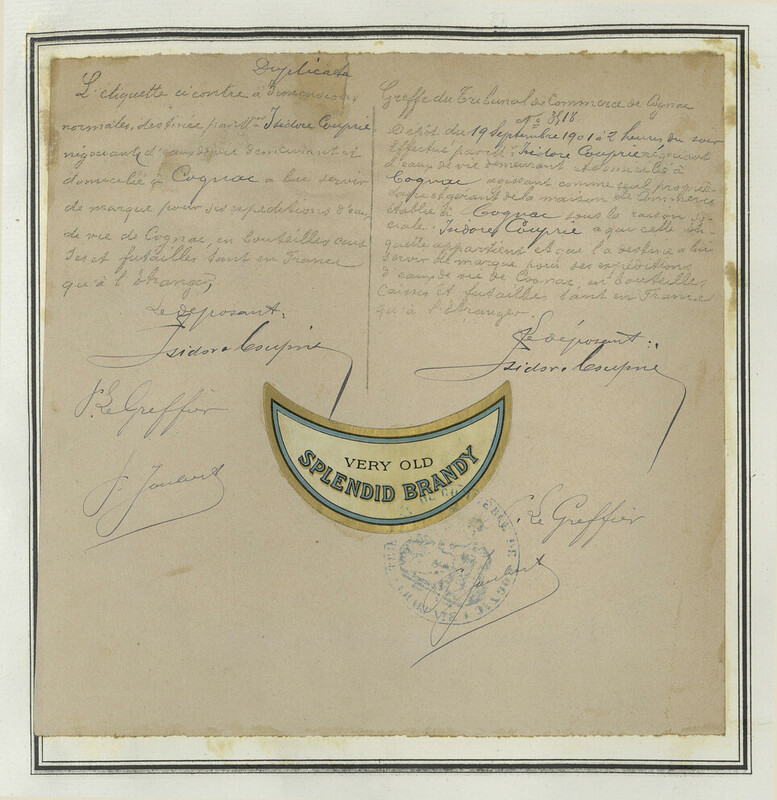 Duplicata
L'étiquette ci contre à dimensions
normales, destinée par Mr Isidore Couprie
négociant, d'eaux de vie demeurant et
domicilié à Cognac a lui servir
de marque pour ses expéditions d'eaux
de vie de Cognac, en bouteilles caisses
et futailles tant en France
qu'à l'étranger,
Le déposant:
Isidore Couprie
P. Le Greffier
J. Joubert
Greffe du Tribunal de Commerce de Cognac
No
Dépôt du 19 Septembre 1901 à 2 heures du soir
Effectué par Mr Isidore Couprie négociant
d'eaux de vie demeurant et domicilié à
Cognac agissant comme seul proprié-
taire et gérant de la maison de commerce
établie à Cognac sous la raison so-
ciale Isidore Couprie a qui cette éti-
quette appartient et qui l'a destinée a lui
servir de marque pour ses expéditions
d'eaux de vie de Cognac, en bouteilles,
caisses et futailles tant en France
qu'à l'étranger.
Le déposant:
Isidore Couprie
VERY OLD
SPLENDID BRANDY
P. Le Greffier
J. Joubert